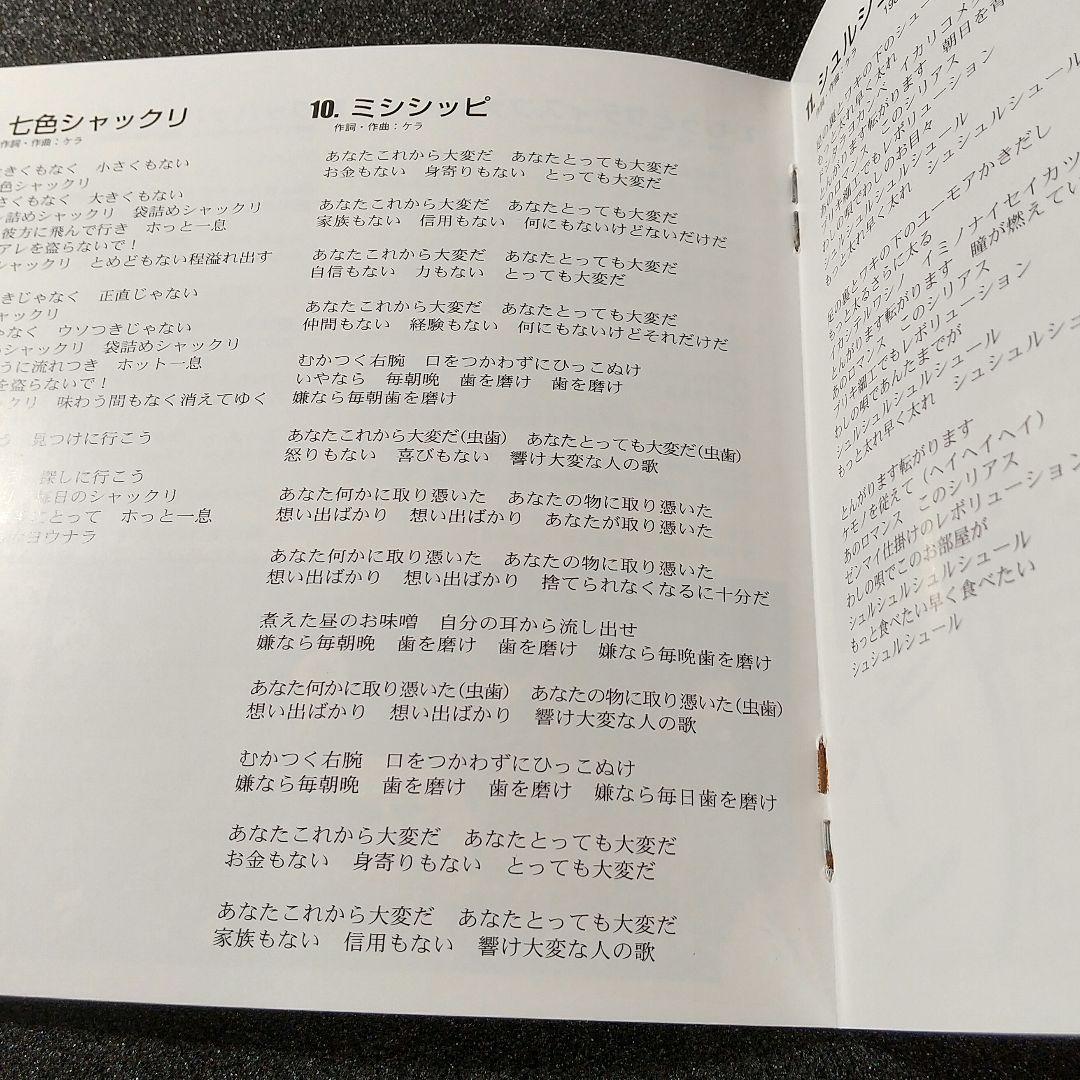 七色シャックリ
作詞・作曲:ケラ
きくもなく 小さくもない
色シャックリ
さくもなく 大きくもない
詰めシャックリ 袋詰めシャックリ
彼方に飛んで行き ホッと一息
アレを盗らないで!
シャックリ とめどもない程溢れ出す
きじゃなく 正直じゃない
ャックリ
ゃなく ウソつきじゃない
シャックリ 袋詰めシャックリ
うに流れつき ホット一息
を盗らないで!
ックリ 味わう間もなく消えてゆく
う 見つけに行こう
探しに行こう
毎日のシャックリ
とって ホっと一息
ヨウナラ
10. ミシシッピ
作詞・作曲:ケラ
あなたこれから大変だ あなたとっても大変だ
お金もない 身寄りもない とっても大変だ
あなたこれから大変だ あなたとっても大変だ
家族もない 信用もない 何にもないけどないだけだ
あなたこれから大変だ あなたとっても大変だ
自信もない 力もない とっても大変だ
あなたこれから大変だ あなたとっても大変だ
仲間もない 経験もない 何にもないけどそれだけだ
むかつく右腕 口をつかわずにひっこぬけ
いやなら 毎朝晩 歯を磨け 歯を磨け
嫌なら毎朝歯を磨け
あなたこれから大変だ(虫歯) あなたとっても大変だ(虫歯)
怒りもない 喜びもない 響け大変な人の歌
あなた何かに取り憑いた あなたの物に取り憑いた
想い出ばかり 想い出ばかり あなたが取り憑いた
あなた何かに取り憑いた あなたの物に取り憑いた
想い出ばかり 想い出ばかり 捨てられなくなるに十分だ
煮えた昼のお味噌 自分の耳から流し出せ
嫌なら毎朝晩 歯を磨け 歯を磨け 嫌なら毎晩歯を磨け
あなた何かに取り憑いた(虫歯) あなたの物に取り憑いた(虫歯)
想い出ばかり 想い出ばかり 響け大変な人の歌
むかつく右腕 口をつかわずにひっこぬけ
嫌なら毎朝晩 歯を磨け 歯を磨け 嫌なら毎日歯を磨け
あなたこれから大変だ あなたとっても大変だ
お金もない 身寄りもない とっても大変だ
あなたこれから大変だ あなたとっても大変だ
家族もない 信用もない 響け大変な人の歌
11. シュルシュ
足の裏とワキの下のシュー
もっとそれ早く太れ イカリコメク
とんがります転がります 朝日を背
あのロマンス このシリアス
ブリキ細工でもレボリューション
わしの唄でわしのお日々
シュルシュルシュルシュール
もっと太れ早く太れ シュシュルシュール
足の裏とワキの下のユーモアかきだし
もっと太るさらに太る
イミノナイセイカツ
とんがります転がります 瞳が燃えてい
あのロマンス このシリアス
ブリキ細工でもレボリューション
わしの唄であんたまでが
シュルシュルシュルシュール
もっと太れ早く太れ シュシュルシ
とんがります転がります
ケモノを従えて(ヘイヘイヘイ)
あのロマンス このシリアス
ゼンマイ仕掛けのレボリューション
わしの唄でこのお部屋が
シュルシュルシュルシュール
もっと食べたい早く食べたい
シュシュルシュール